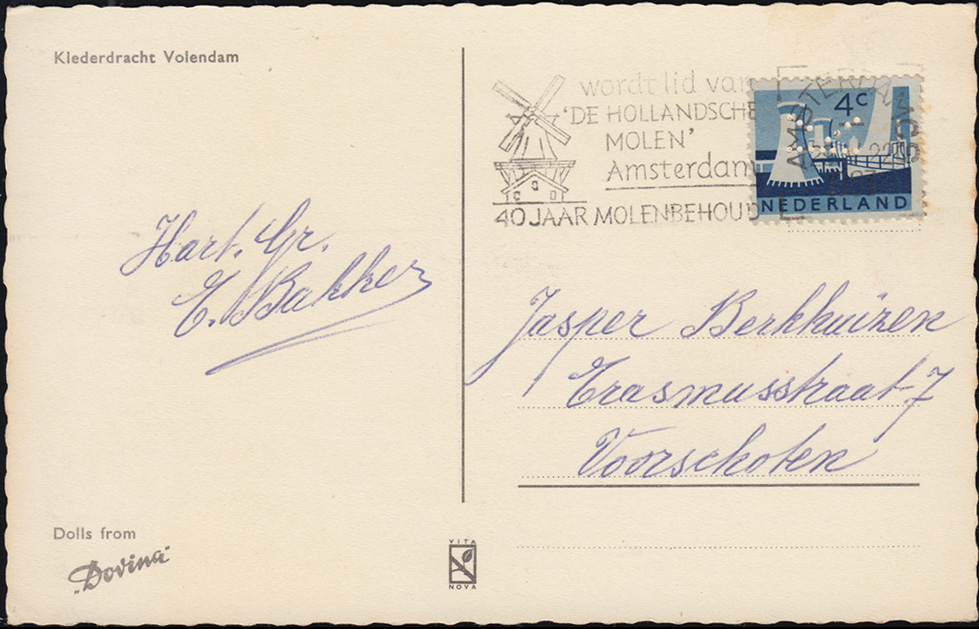 Klederdracht Volendam
wordt lid van
'DE HOLLANDSCHE
MOLEN'
Amsterdam
40 JAAR MOLENBEHOUD
AMSTERDAM
4c
NEDERLAND
Hart. Gr.
E. Bakker
Jasper Berkhuizen
Erasmusstraat 7
Voorschoten
Dolls from
"Dovina"
VITA
NOVA